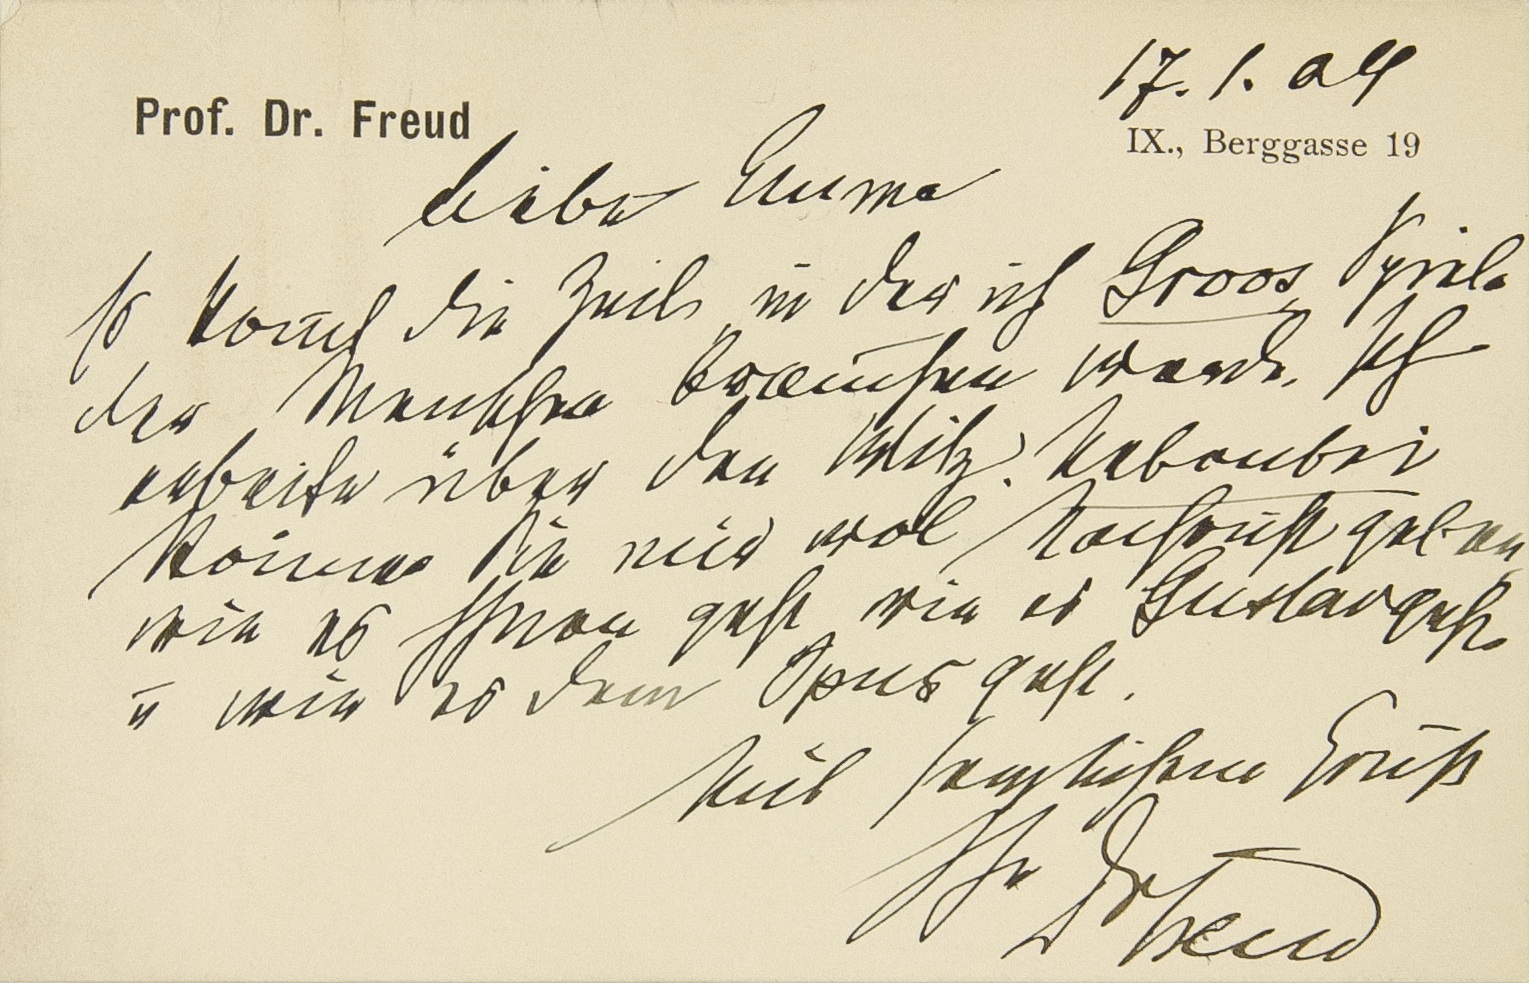 Prof. Dr. Freud
17.1.04
IX., Berggasse 19
Liebe Emma
Es kommt die Zeit, in der ich Groos Spiele
der Menschen brauchen werde. Ich
arbeite über den Witz. Nebenbei
können Sie mir wol Nachricht geben
wie es Ihnen geht wie es Gustav geht
u wie es dem Opus geht.
Mit herzlichem Gruß
Ihr Dr Freud